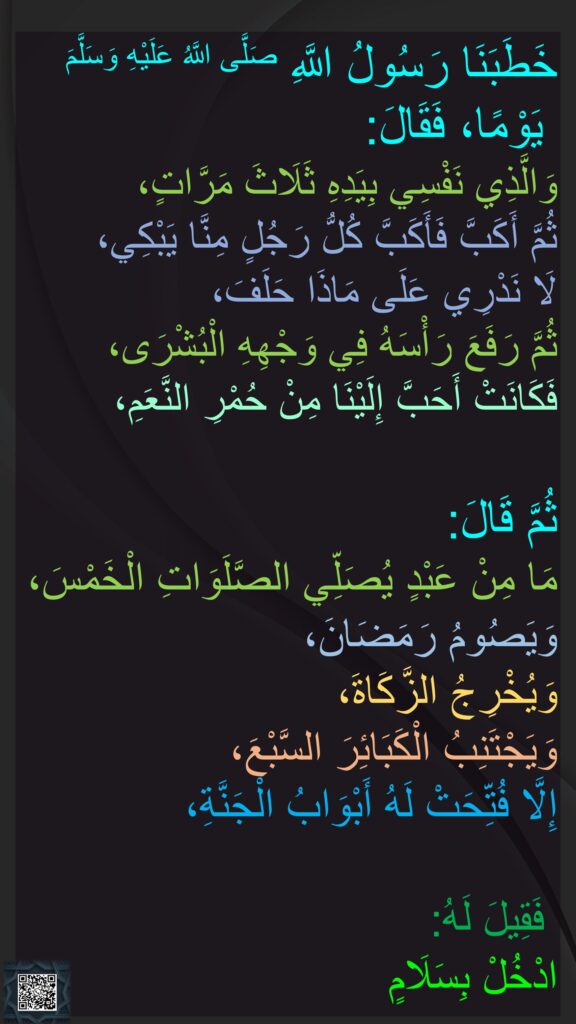 خَطَبَنَا رَسُولُ اللَّهِ صَلَّى اللَّهُ عَلَيْهِ وَسَلَّمَ
يَوْمًا، فَقَالَ:
وَالَّذِي نَفْسِي بِيَدِهِ ثَلَاثَ مَرَّاتٍ،
ثُمَّ أَكَبَّ فَأَكَبَّ كُلُّ رَجُلٍ مِنَّا يَبْكِي،
لَا نَدْرِي عَلَى مَاذَا حَلَفَ،
ثُمَّ رَفَعَ رَأْسَهُ فِي وَجْهِهِ الْبُشْرَى،
فَكَانَتْ أَحَبَّ إِلَيْنَا مِنْ حُمْرِ النَّعَمِ،
ثُمَّ قَالَ:
مَا مِنْ عَبْدٍ يُصَلِّي الصَّلَوَاتِ الْخَمْسَ،
وَيَصُومُ رَمَضَانَ،
وَيُخْرِجُ الزَّكَاةَ،
وَيَجْتَنِبُ الْكَبَائِرَ السَّبْعَ،
إِلَّا فُتِّحَتْ لَهُ أَبْوَابُ الْجَنَّةِ،
فَقِيلَ لَهُ:
ادْخُلْ بِسَلَامٍ